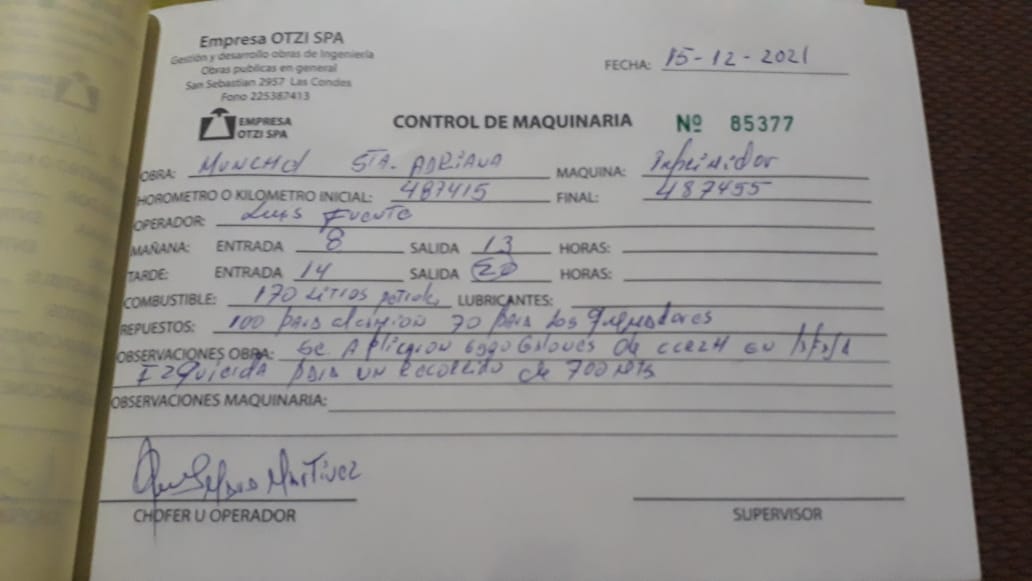 Empresa OTZI SPA
Gestión y desarrollo obras de Ingeniería
Obras publicas en general
San Sebastian 2957 Las Condes
Fono 225387413
FECHA: 15-12-2021
EMPRESA
OTZI SPA
CONTROL DE MAQUINARIA Nº 85377
OBRA: STA. ADRIANA MAQUINA:
HOROMETRO O KILOMETRO INICIAL: 487415 FINAL: 487455
OPERADOR: Luis Fuente
MAÑANA: ENTRADA 8 SALIDA 13 HORAS:
TARDE: ENTRADA 14 SALIDA 20 HORAS:
COMBUSTIBLE: 170 Litros LUBRICANTES:
REPUESTOS: 100 para 70 para los quemadores
OBSERVACIONES OBRA: Se Aplicaron de en
Izquierda para un Recorrido de 700 Mts
OBSERVACIONES MAQUINARIA:
Martinez
CHOFER U OPERADOR
SUPERVISOR